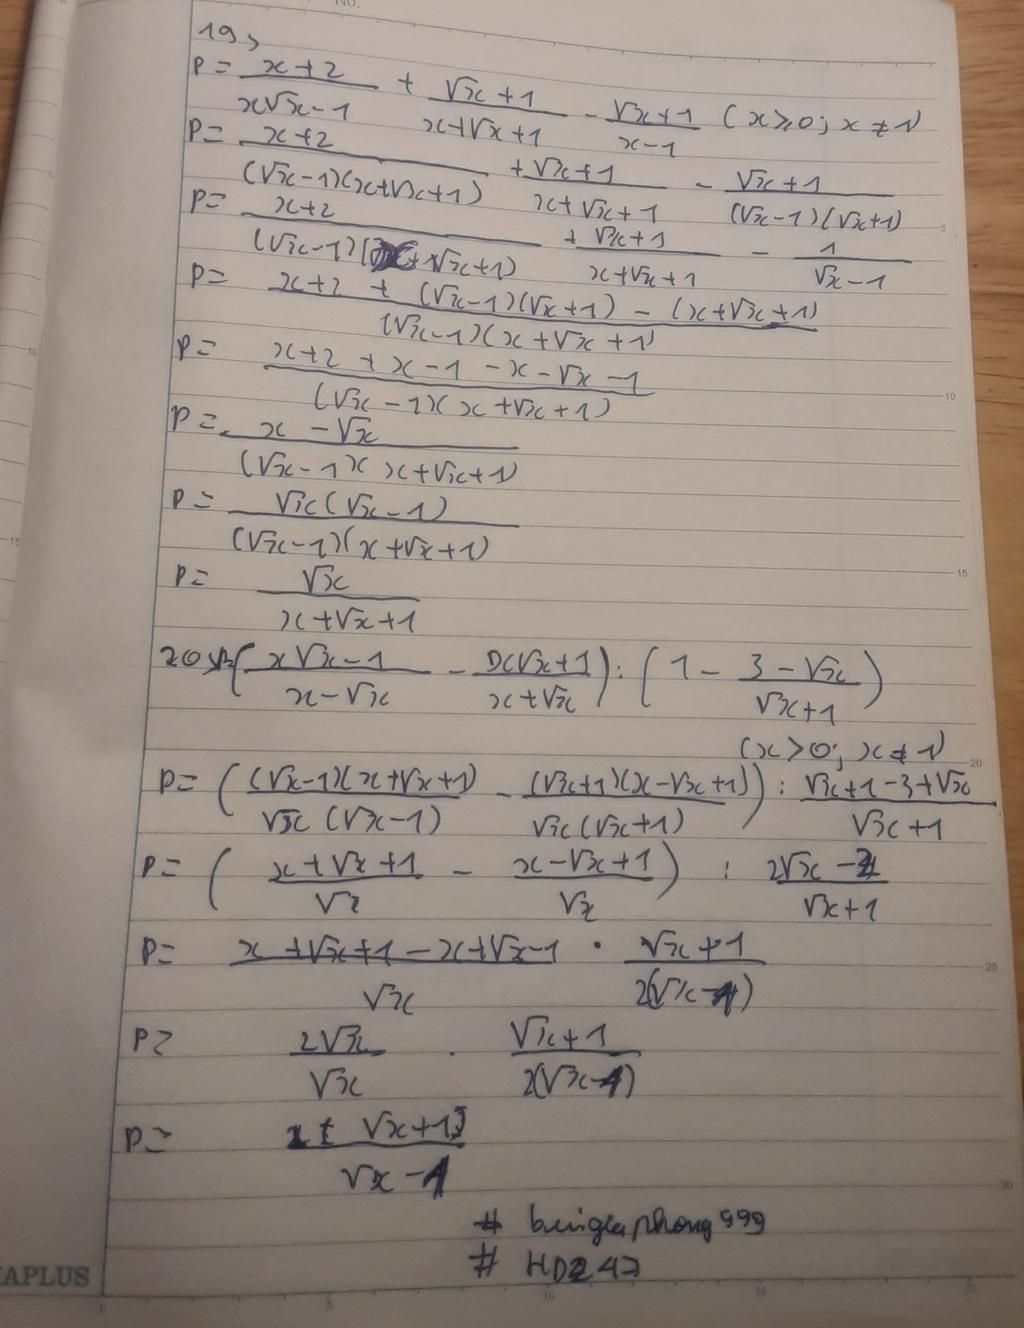 NO.
19,
P = (x+2)/(x√x-1) + (√x+1)/(x+√x+1) - (√x+1)/(x-1) (x≥0; x≠1)
P = (x+2)/((√x-1)(x+√x+1)) + (√x+1)/(x+√x+1) - (√x+1)/((√x-1)(√x+1))
P = (x+2)/((√x-1)(x+√x+1)) + (√x+1)/(x+√x+1) - 1/(√x-1)
P = (x+2 + (√x-1)(√x+1) - (x+√x+1))/((√x-1)(x+√x+1))
P = (x+2 + x-1 - x-√x-1)/((√x-1)(x+√x+1))
P = (x-√x)/((√x-1)(x+√x+1))
P = (√x(√x-1))/((√x-1)(x+√x+1))
P = √x/(x+√x+1)
20, P=((x√x-1)/(x-√x) - (x√x+1)/(x+√x)) : (1 - (3-√x)/(√x+1))
(x>0; x≠1)
P = (((√x-1)(x+√x+1))/(√x(√x-1)) - ((√x+1)(x-√x+1))/(√x(√x+1))) : (√x+1-3+√x)/(√x+1)
P = ((x+√x+1)/√x - (x-√x+1)/√x) : (2√x-2)/(√x+1)
P = (x+√x+1-x+√x-1)/√x · (√x+1)/(2(√x-1))
P = 2√x/√x · (√x+1)/(2(√x-1))
P = (√x+1)/(√x-1)
# buigiaphong999
# HD247
APLUS
5
10
15
20
25
30
10
15
0
5
10
15
20